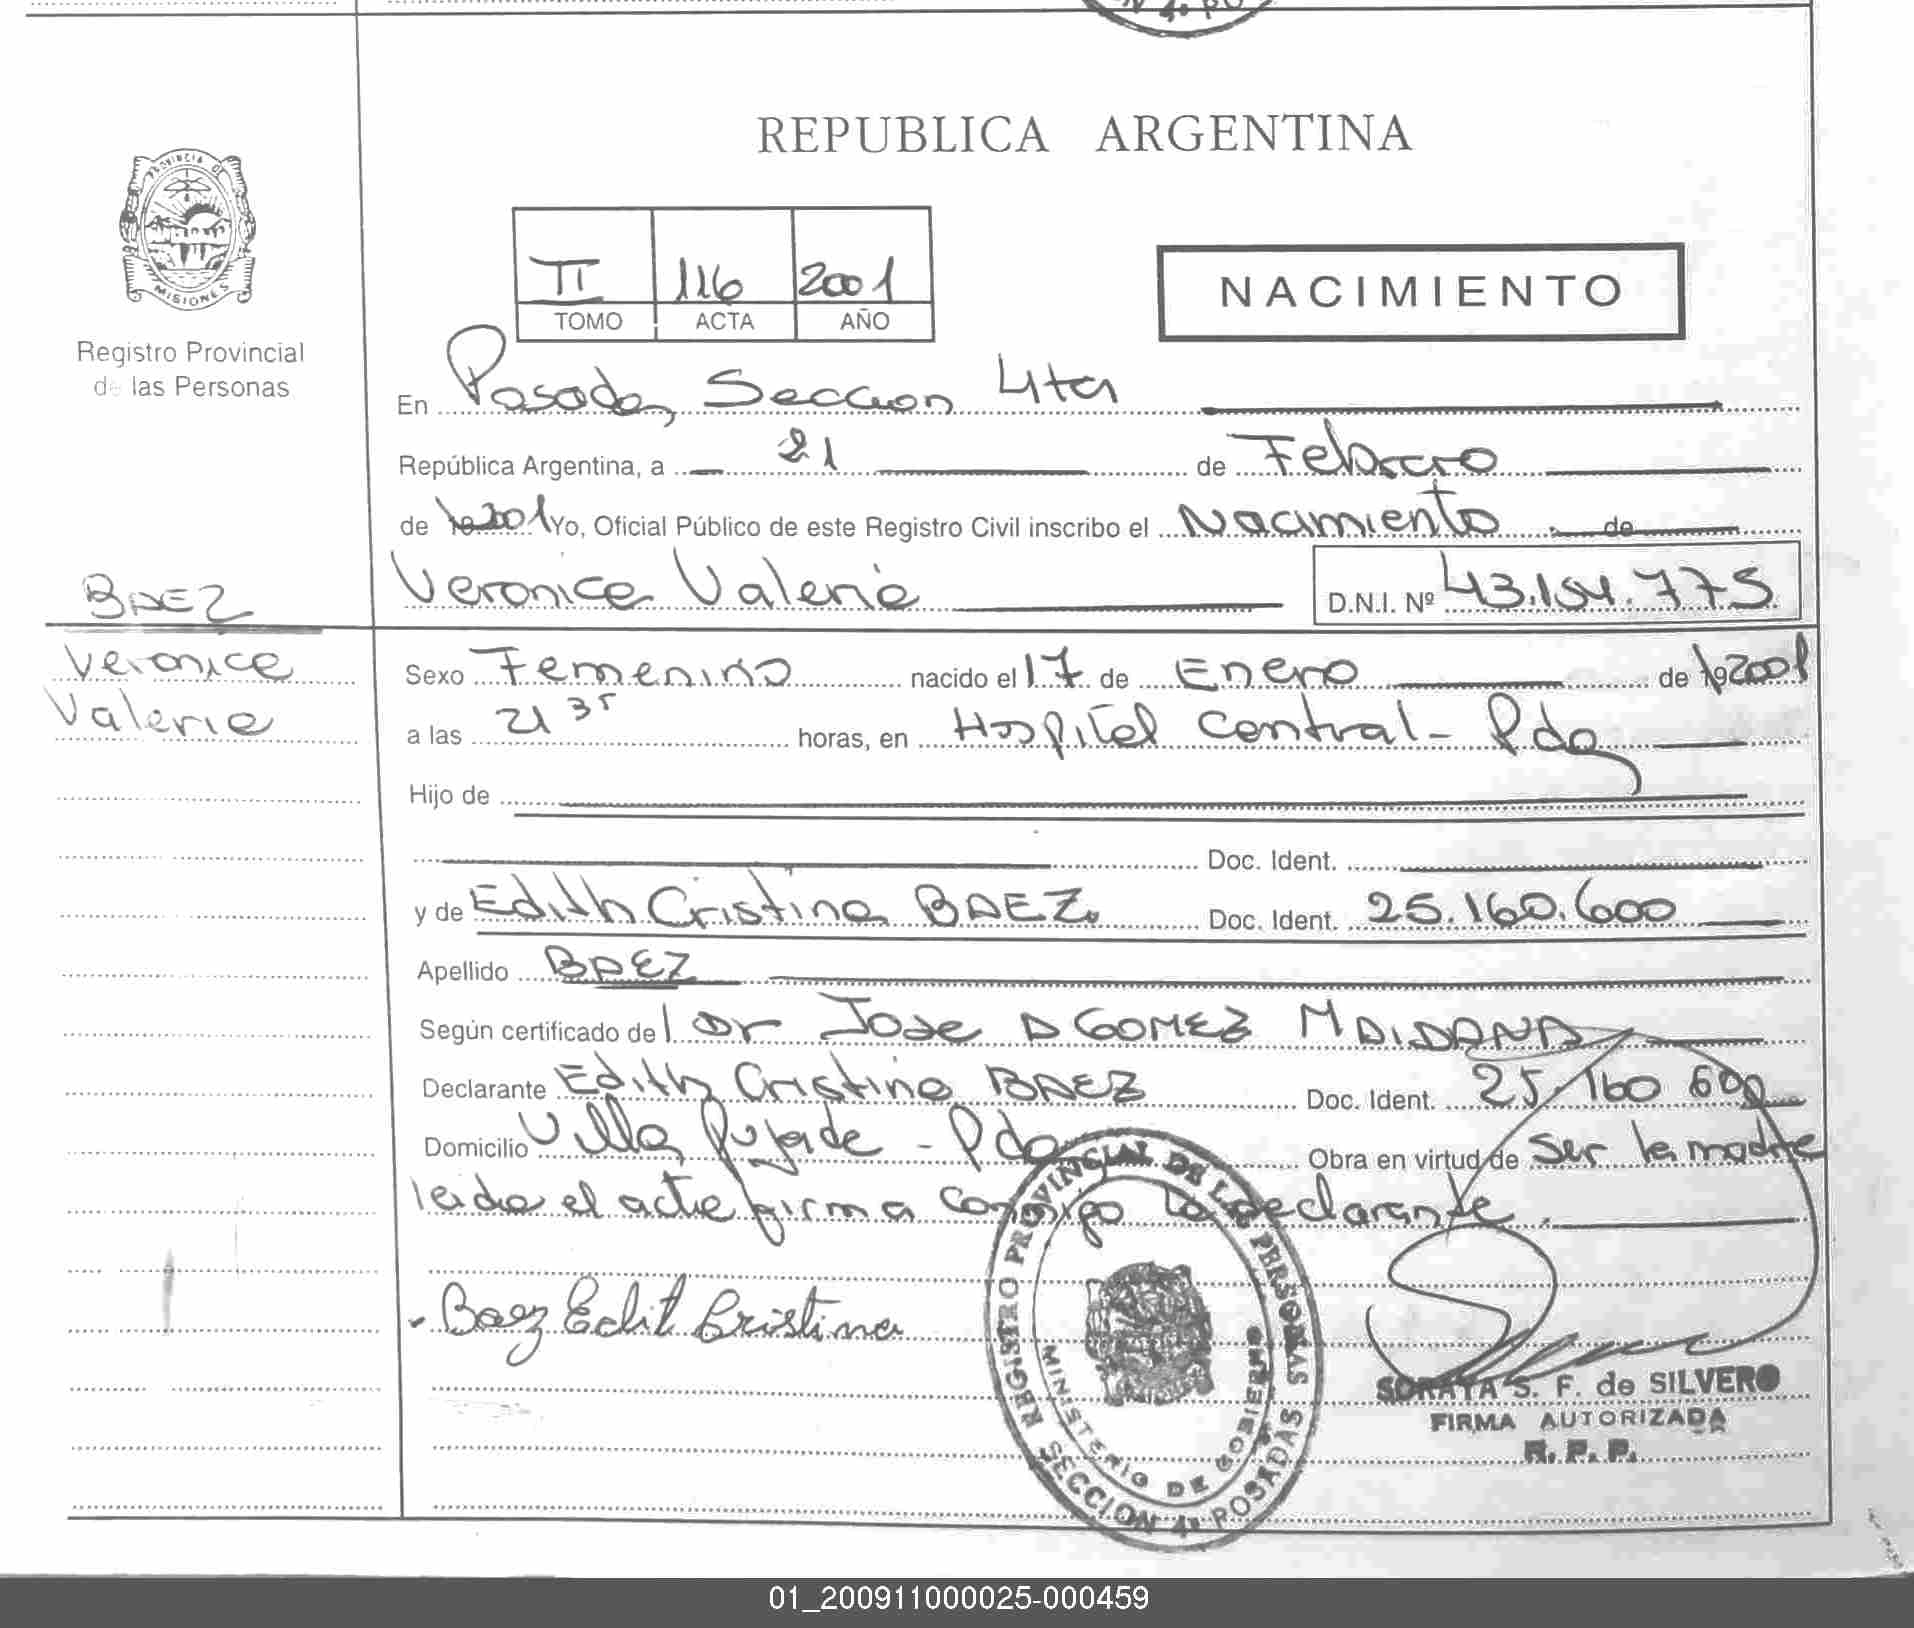 REPUBLICA ARGENTINA
PROVINCIA DE
MISIONES
Registro Provincial
de las Personas
II 116 2001
TOMO ACTA AÑO
NACIMIENTO
En Posadas, Seccion 4ta
República Argentina, a 21 de Febrero
de 2001 Yo, Oficial Público de este Registro Civil inscribo el Nacimiento de
Veronica Valeria D.N.I. Nº 43.154.775
BAEZ
Veronica
Valeria
Sexo Femenino nacido el 17 de Enero de 192001
a las 21 35 horas, en Hospital Central - Pdas
Hijo de
Doc. Ident.
y de Edith Cristina BAEZ. Doc. Ident. 25.160.600
Apellido BAEZ
Según certificado del Dr Jose A GOMEZ MAIDANA
Declarante Edith Cristina BAEZ Doc. Ident. 25.160 600
Domicilio Villa Pujada - Pdas Obra en virtud de ser la madre
leida el acta firma conmigo la declarante.
Baez Edit Cristina
REGISTRO PROVINCIAL DE LAS PERSONAS
MINISTERIO DE GOBIERNO
SECCION 4ª POSADAS
SORAYA S. F. de SILVERO
FIRMA AUTORIZADA
R. P. P.
01_200911000025-000459